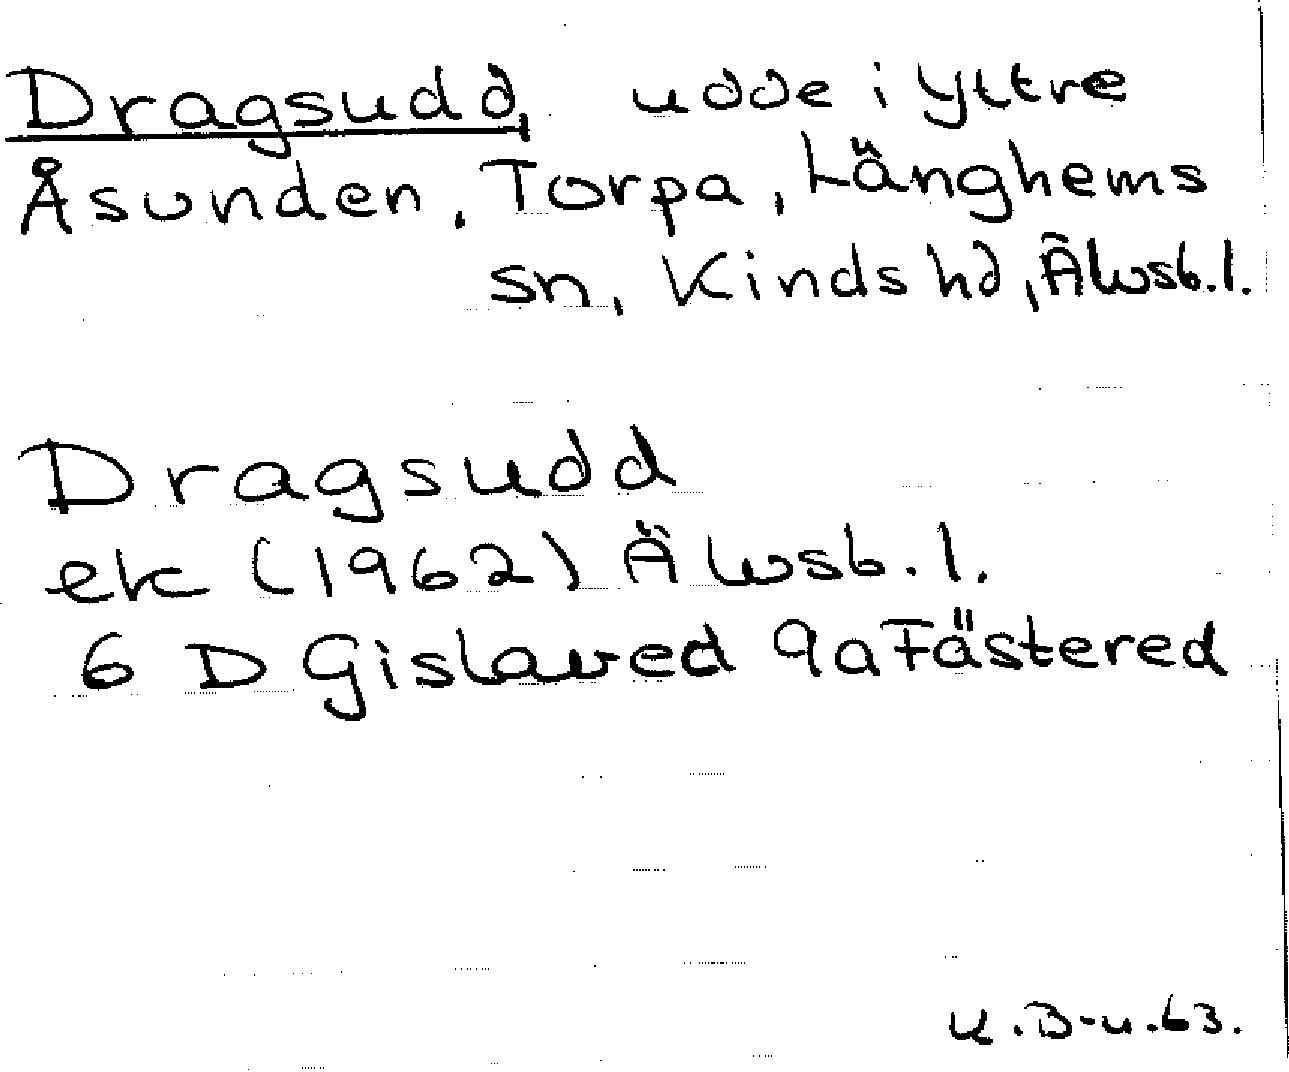 Dragsudd, udde i Yttre
Åsunden, Torpa, Länghems
sn, Kinds hd, Älvsb.l.
Dragsudd
ek (1962) Älvsb.l.
6 D Gislaved 9a Fästered
K.B-u.63.